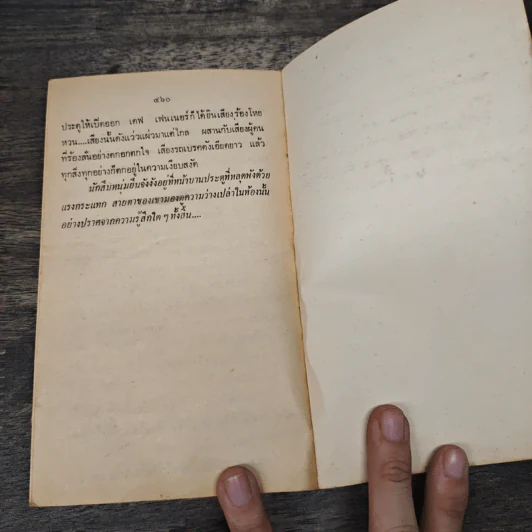 ๔๖๐
ประตูให้เปิดออก เดฟ เฟนเนอร์ก็ได้ยินเสียงร้องโหย
หวน....เสียงนั้นดังแว่วแผ่วมาแต่ไกล ผสานกับเสียงผู้คน
ที่ร้องลั่นอย่างตกอกตกใจ เสียงรถเบรคดังเอียดยาว แล้ว
ทุกสิ่งทุกอย่างก็ตกอยู่ในความเงียบสงัด
นักสืบหนุ่มยืนจังงังอยู่ที่หน้าบานประตูที่หลุดพังด้วย
แรงกระแทก สายตาของเขามองดูความว่างเปล่าในห้องนั้น
อย่างปราศจากความรู้สึกใด ๆ ทั้งสิ้น....